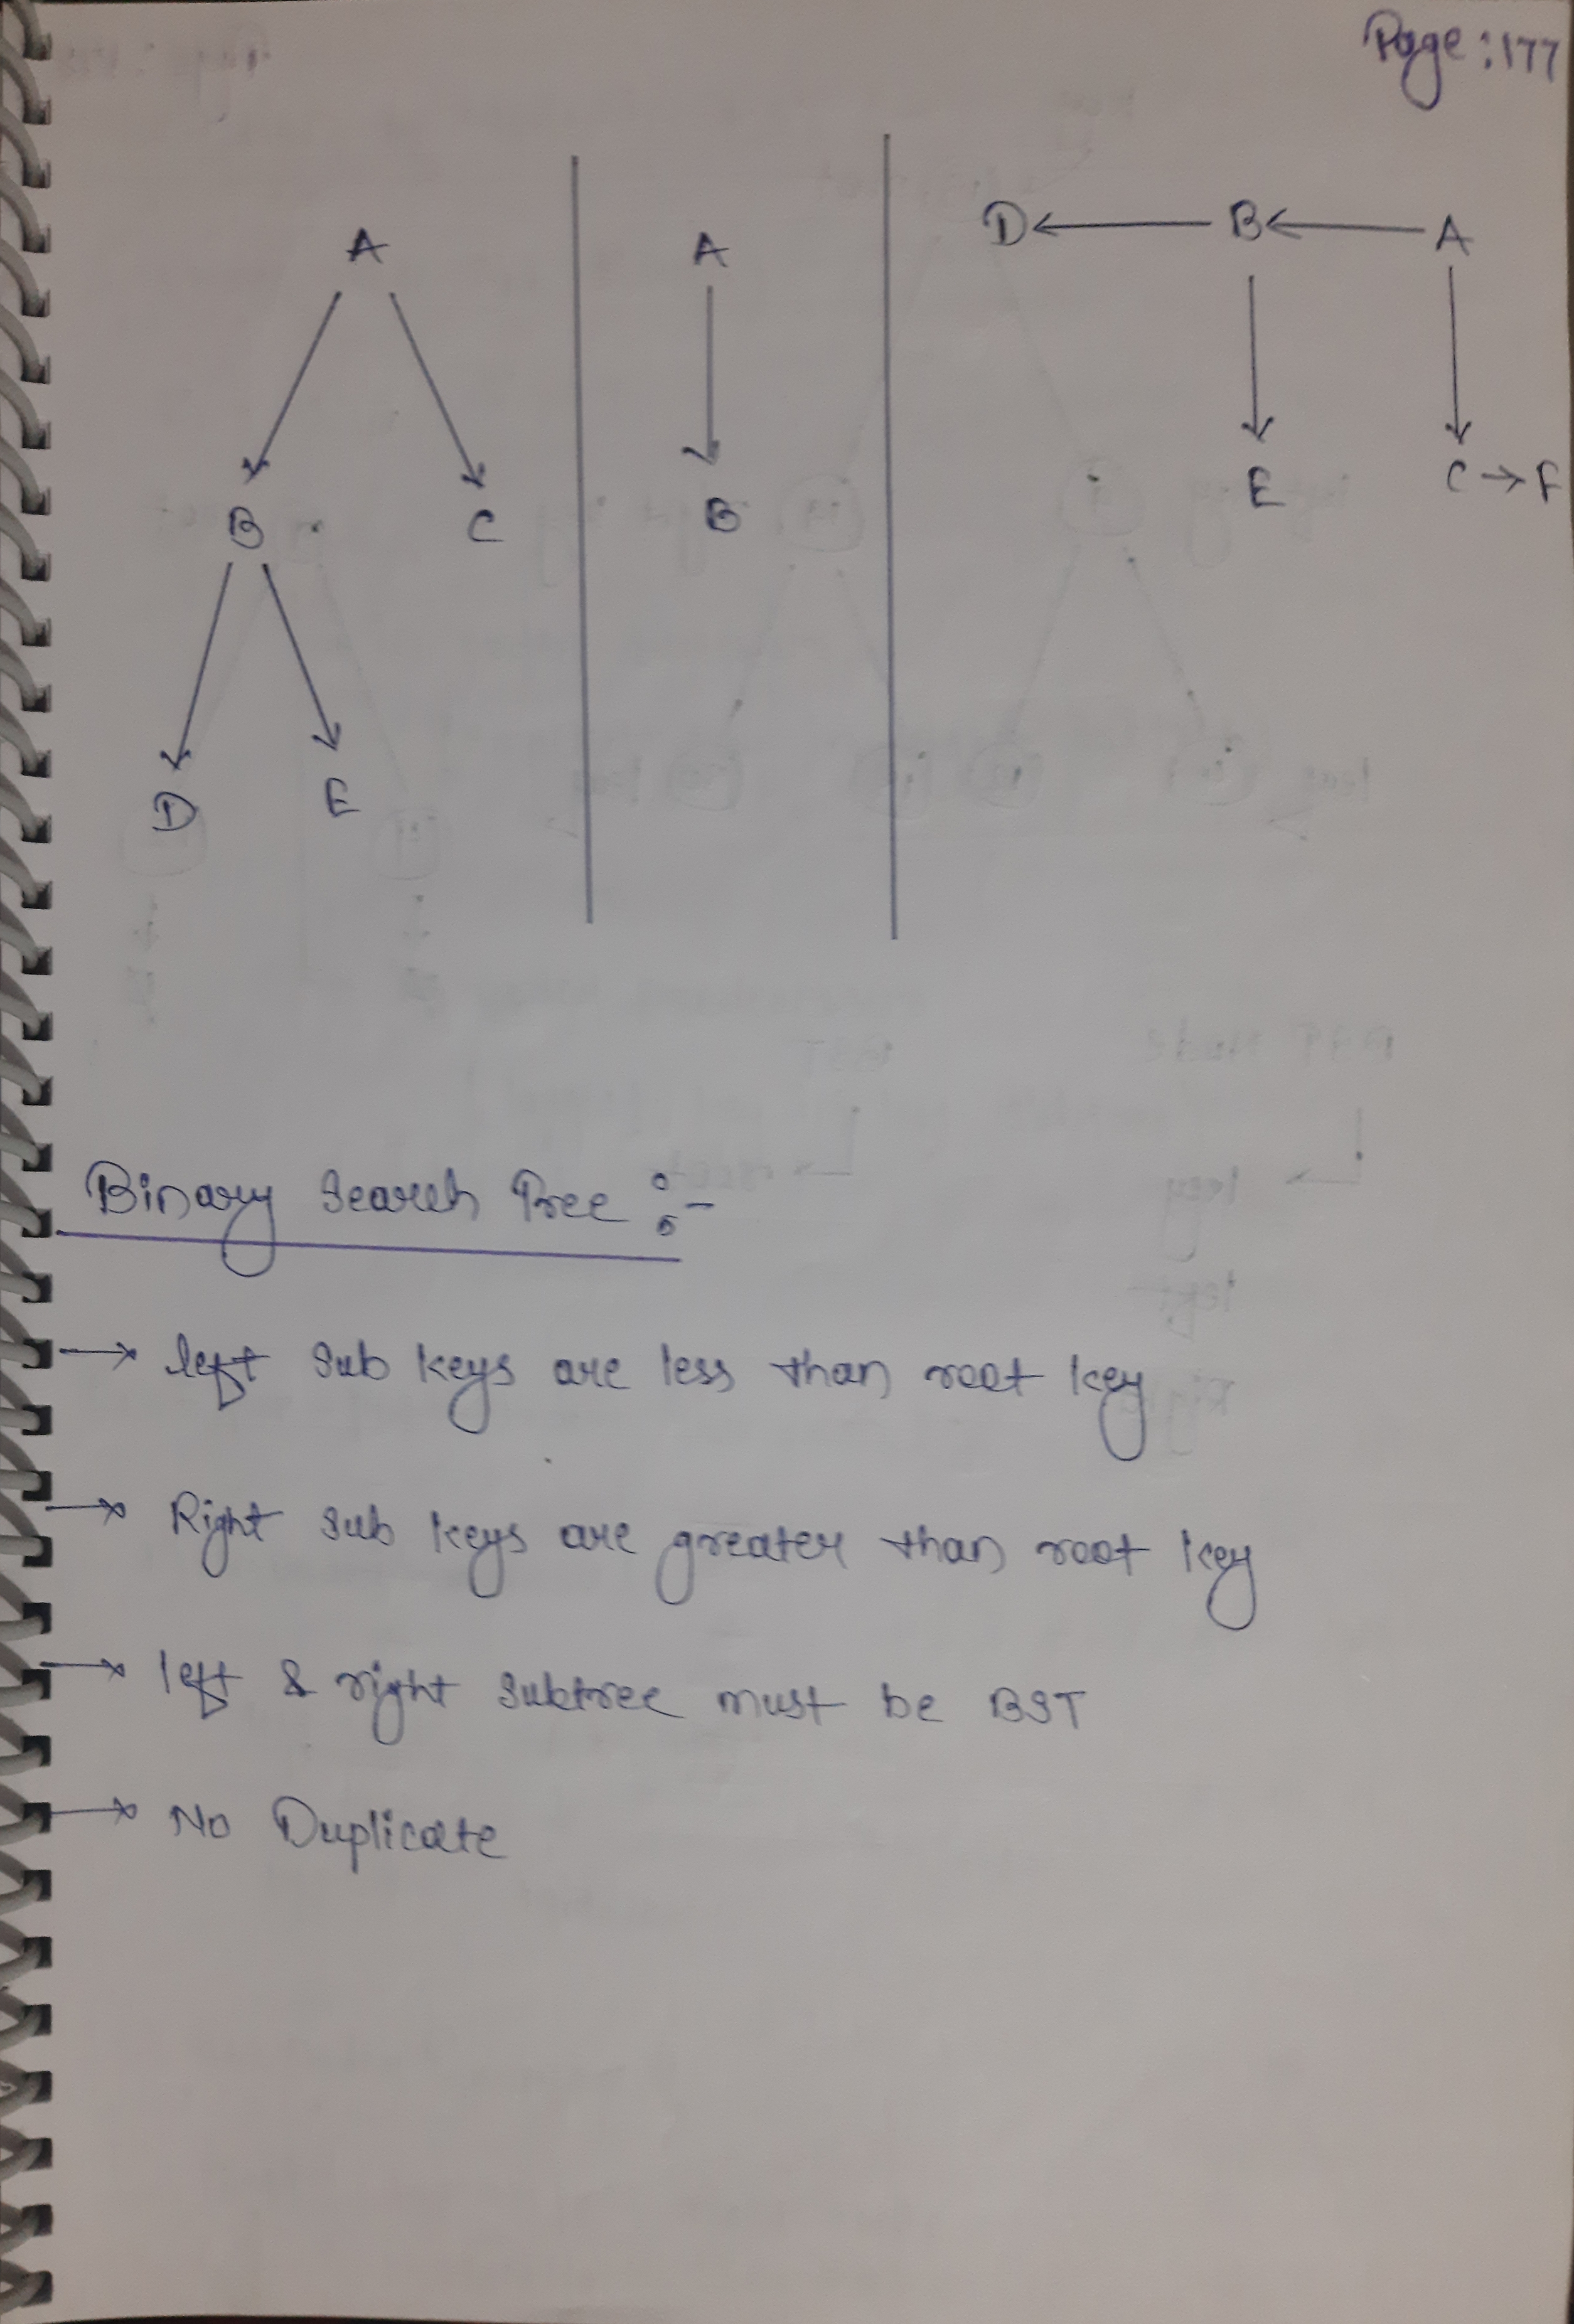 Page : 177
A
B C
D E
A
B
D ← B ← A
E C → F
Binary Search Tree :-
→ left sub keys are less than root key
→ Right sub keys are greater than root key
→ left & right subtree must be BST
→ No Duplicate